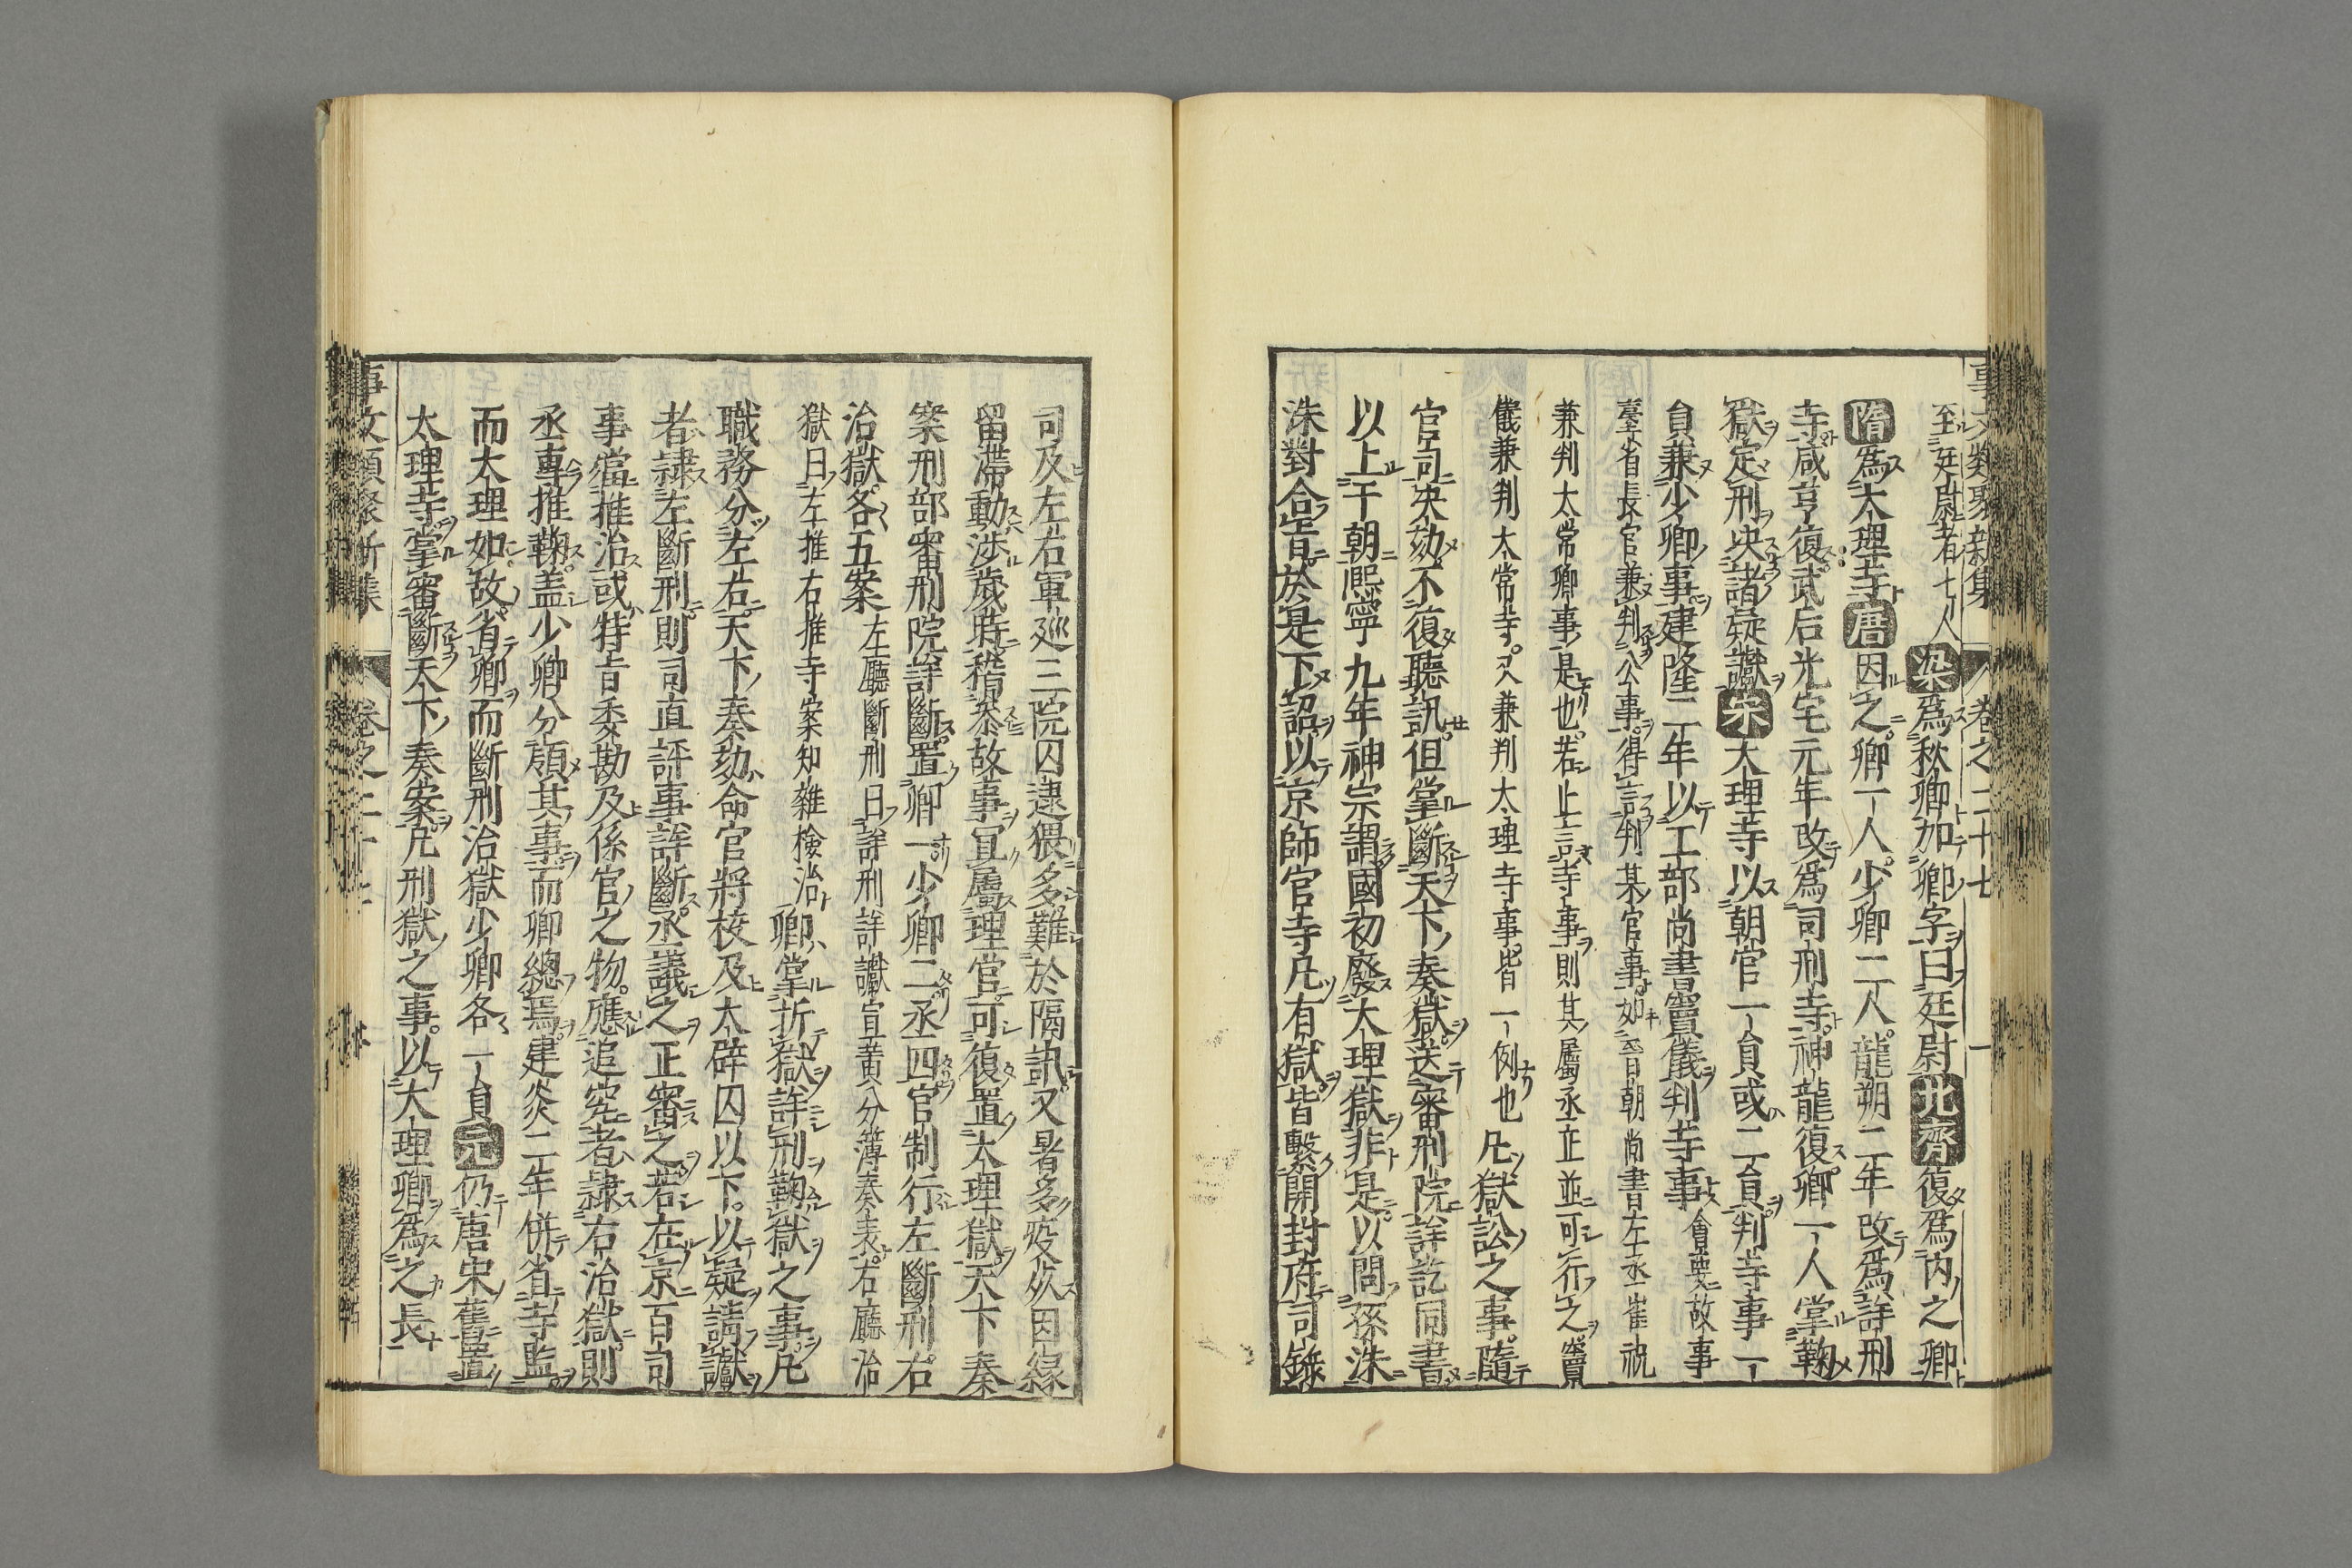 事文類聚新集 卷之二十七
至廷尉者七人梁爲秋卿加卿字曰廷尉北齊復爲内之卿
隋爲大理寺唐因之卿一人少卿二人龍朔二年改爲詳刑
寺咸亨復武后光宅元年改爲司刑寺神龍復卿一人掌鞫
獄定刑决諸疑讞宋大理寺以朝官一員或二員判寺事一
員兼少卿事建隆二年以工部尚書竇儀判寺事會要故事
臺省長官兼判公事得言判某官事如昔日朝尚書左丞崔祝
兼判太常卿事是也若止言寺事則其屬丞正並可行之竇
儀兼判太常寺又兼判大理寺事皆一例也凡獄訟之事隨
官司决劾不復聽訊但掌斷天下奏獄送審刑院詳訖同書
以上于朝熙寧九年神宗謂國初廢大理獄非是以問孫洙
洙對合旨於是下詔以京師官寺凡有獄皆繫開封府司錄
司及左右軍廵三院囚逮猥多難於隔訊又暑多疫死因緣
留滯動涉歲時稽泰故事宜屬理官可復置大理獄天下奏
案刑部審刑院詳斷置卿一少卿二丞四官制行左斷刑右
治獄各五案左廳斷刑曰詳刑詳讞宣黄分簿奏表右廳治
獄曰左推右推寺案知雜檢治卿掌折獄詳刑鞫獄之事凡
職務分左右天下奏劾命官將校及大辟囚以下以疑請讞
者隷左斷刑則司直評事詳斷丞議之正審之若在京百司
事當推治或特旨委勘及係官之物應追究者隷右治獄則
丞專推鞫盖少卿分領其事而卿總焉建炎二年併省寺監
而大理如故省卿而斷刑治獄少卿各一員元仍唐宋舊置
大理寺掌審斷天下奏案凡刑獄之事以大理卿爲之長
事文類聚新集 卷之二十七